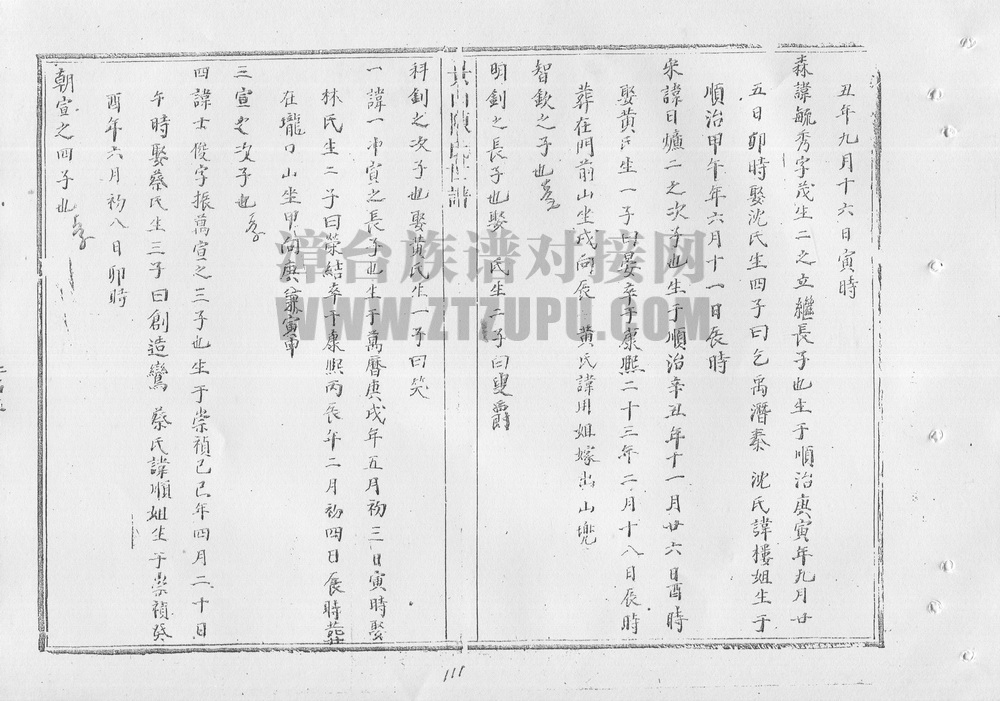 丑年九月十六日寅時
森諱毓秀字茂生二之立繼長子也生于順治庚寅年九月廿
五日卯時娶沈氏生四子曰乞禹潛泰 沈氏諱樓姐生于
順治甲午年六月十一日辰時
諱日爐二之次子也生于順治辛丑年十一月廿六日酉時
娶黃氏生一子曰晏卒于康熙二十三年二月十八日辰時
葬在門前山坐戌向辰 黃氏諱用姐嫁出山兜
智欽之子也
明釗之長子也娶 氏生二子曰 爵
陳氏世譜
科釗之次子也娶黃氏生一子曰笑
一諱一冲寅之長子也生于萬曆庚戌年五月初三日寅時娶
林氏生二子曰榮結卒于康熙丙辰年二月初四日辰時葬
在壠口山坐甲向庚兼寅申
三宣之次子也
四諱士俊字振萬宣之三子也生于崇禎己巳年四月二十日
午時娶蔡氏生三子曰創造鸞 蔡氏諱順姐生于崇禎癸
酉年六月初八日卯時
朝宣之四子也
111
漳台族谱对接网
WWW.ZTZUPU.COM